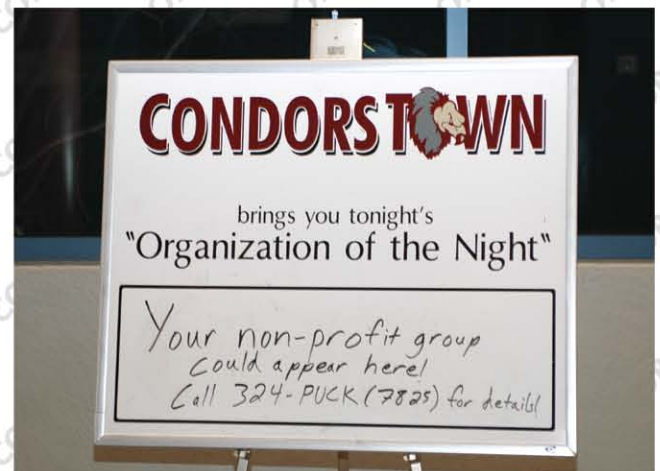 CONDORSTOWN
brings you tonight's
"Organization of the Night"
Your non-profit group
could appear here!
Call 324-PUCK (7825) for details!